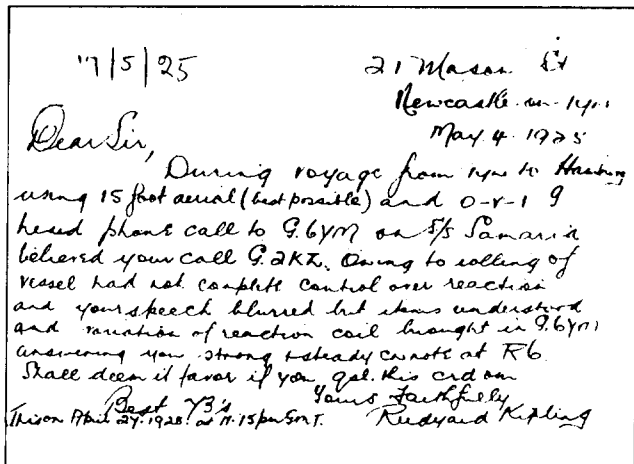 7/5/25
21 Mason St
Newcastle-on-Tyne
May 4 1925
Dear Sir,
During voyage from Tyne to Hamburg
using 15 foot aerial (best possible) and 0-v-1 I
heard phone call to G.6YM on S/S Samaria
believed your call G.2KZ. Owing to rolling of
vessel had not complete control over reaction
and your speech blurred but items understood
and variation of reaction coil brought in G.6YM
answering you strong & steady cw note at R6.
Shall deem it favor if you qsl. this crd om
Yours faithfully
Best 73's
This on April 27. 1925. at 11.15 pm G.M.T.
Rudyard Kipling